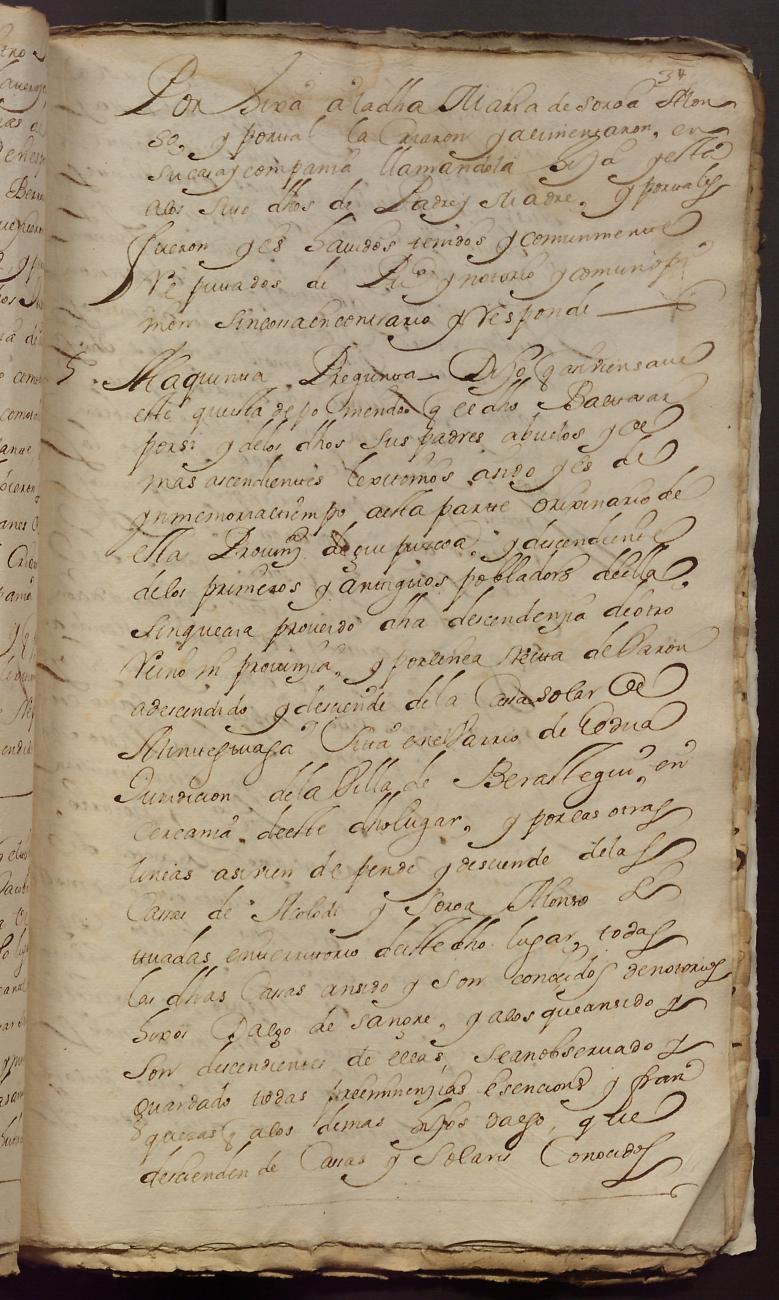 34
Por hixa a la dha Maria de soroa Alon
so, y por tal la Criaron y alimentaron, en
su casa y compania llamandola hija y ella
a los suso dhos de Padre y Madre, y por tales
fueron y es havidos tenidos y comunmente
Reputados de Puco y notorio y comun opi
nion sin cosa en contrario y Responde
5. A la quinta Pregunta Dijo q
este que el a depo mendo q el dho Baltasar
por si y de los dhos sus padres abuelos y de
mas ascendientes lexitimos a sido y es de
ynmemorial tiempo a esta parte orixinario de
esta Prouinª de guipuzcoa, y descendiente
de los primeros y antiguos pobladors de ella
sin que aia proucido dha descendenzia de otro
Reino ni prouinzia, y por linea Recta de Baron
a descendido y desciende de la Casa solar de
Minuesuaga sita en el Barrio de Eldua
Jurisdicion de la Villa de Berastegui, en
cercania de este dho lugar, y por las otras
lineas asi bien depende y desciende de las
Casas de y Soroa Alonso si
tuadas en territorio de este dho lugar, todas
las dhas Casas an sido y son conocidos de notorios
hixos Dalgo de sangre, y a los que an sido y
son descendientes de ellas, se an observado y
guardado todas preeminenzias esencions y fran
quezas q a los demas hijos dalgo, que
descienden de Casas y Solares Conocidos